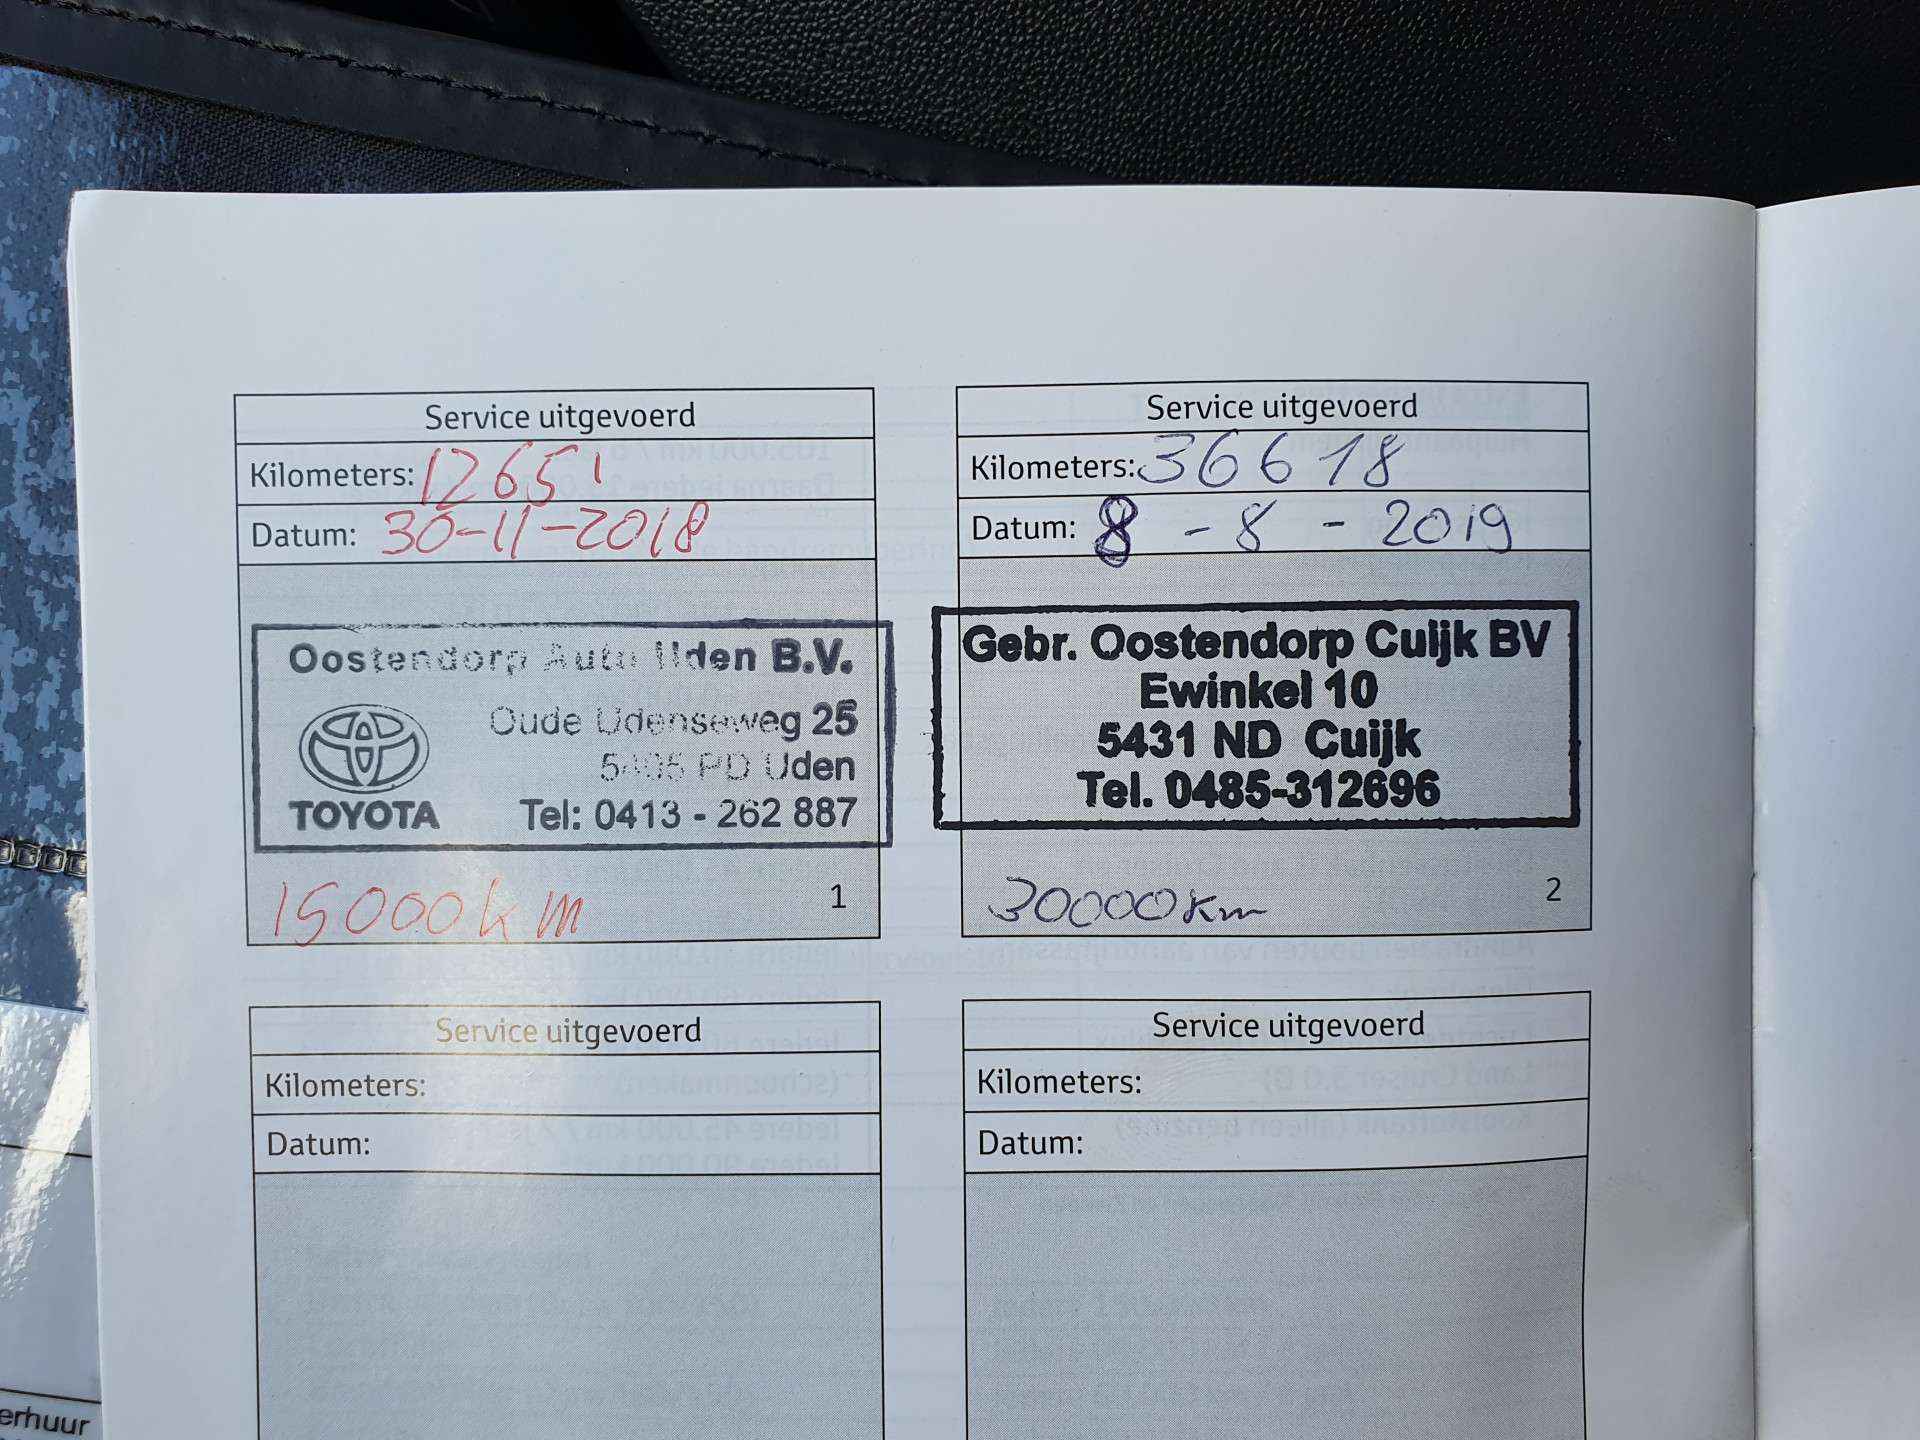 Service uitgevoerd
Kilometers: 12651
Datum: 30-11-2018
Oostendorp Auto Uden B.V.
Oude Udenseweg 25
5405 PD Uden
TOYOTA
Tel: 0413 - 262 887
15000 km
1
Service uitgevoerd
Kilometers: 36618
Datum: 8 - 8 - 2019
Gebr. Oostendorp Cuijk BV
Ewinkel 10
5431 ND Cuijk
Tel. 0485-312696
30000 km
2
Service uitgevoerd
Kilometers:
Datum:
Service uitgevoerd
Kilometers:
Datum:
erhuur